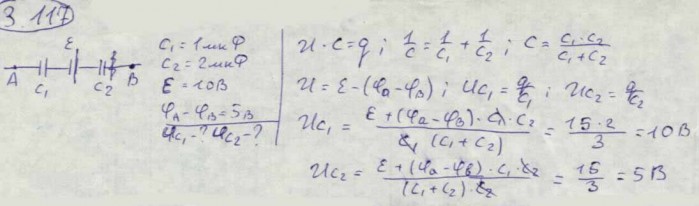 3.117
A C₁ ε C₂ B
C₁ = 1 мкФ
C₂ = 2 мкФ
ε = 10В
φA - φB = 5В
Uc₁ - ? Uc₂ - ?
U · C = q ; 1/C = 1/C₁ + 1/C₂ ; C = C₁·C₂/(C₁+C₂)
U = ε - (φa - φB) ; Uc₁ = q/C₁ ; Uc₂ = q/C₂
Uc₁ = ε + (φa - φB) · C₁ · C₂ / C₁ (C₁ + C₂) = 15·2/3 = 10В
Uc₂ = ε + (φa - φB) · C₁ · C₂ / (C₁ + C₂) · C₂ = 15/3 = 5В